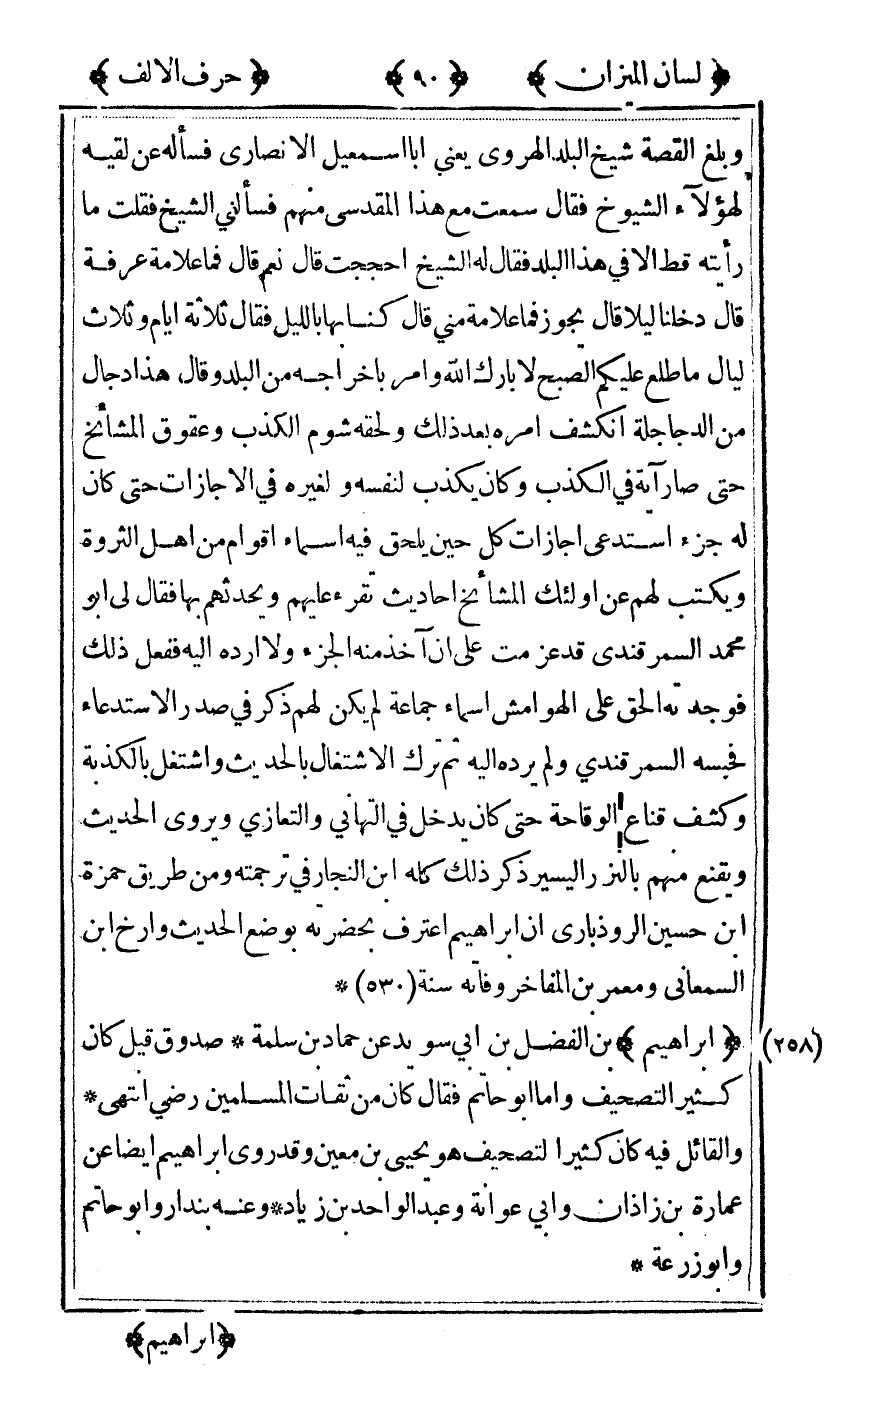 ﴿ لسان الميزان ﴾ ﴿ ٩٠ ﴾ ﴿ حرف الالف ﴾
وبلغ القصة شيخ البلد الهروى يعني ابا اسمعيل الانصارى فسأله عن لقيه
لهؤلآء الشيوخ فقال سمعت مع هذا المقدسى منهم فسألني الشيخ فقلت ما
رأيته قط الا في هذا البلد فقال له الشيخ احججت قال نعم قال فما علامة عرفة
قال دخلنا ليلا قال يجوز فما علامة مني قال كنا بها بالليل فقال ثلاثة ايام وثلاث
ليال ما طلع عليكم الصبح لا بارك الله وامر باخراجه من البلد وقال هذا دجال
من الدجاجلة انكشف امره بعد ذلك ولحقه شوم الكذب وعقوق المشائخ
حتى صار آية في الكذب وكان يكذب لنفسه ولغيره في الاجازات حتى كان
له جزء استدعى اجازات كل حين يلحق فيه اسماء اقوام من اهل الثروة
ويكتب لهم عن اولئك المشائخ احاديث تقرء عليهم ويحدثهم بها فقال لى ابو
محمد السمرقندى قد عزمت على ان آخذ منه الجزء ولا ارده اليه ففعل ذلك
فوجد ته الحق على الهوامش اسماء جماعة لم يكن لهم ذكر في صدر الاستدعاء
فحبسه السمرقندي ولم يرده اليه ثم ترك الاشتغال بالحديث واشتغل بالكذبة
وكشف قناع الوقاحة حتى كان يدخل في التهاني والتعازي ويروى الحديث
ويقنع منهم بالنزر اليسير ذكر ذلك كله ابن النجار في ترجمته ومن طريق حمزة
ابن حسين الروذبارى ان ابراهيم اعترف بحضرته بوضع الحديث وارخ ابن
السمعانى ومعمر بن المفاخر وفاته سنة (٥٣٠) *
﴿ ابراهيم ﴾ بن الفضل بن ابي سويد عن حماد بن سلمة * صدوق قيل كان (٢٥٨)
كثير التصحيف واما ابو حاتم فقال كان من ثقات المسلمين رضي انتهى *
والقائل فيه كان كثيرا لتصحيف هو يحيى بن معين وقدروى ابراهيم ايضا عن
عمارة بن زاذان وابي عوانة وعبد الواحد بن زياد * وعنه بندار وابو حاتم
وابوزرعة *
﴿ابراهيم﴾